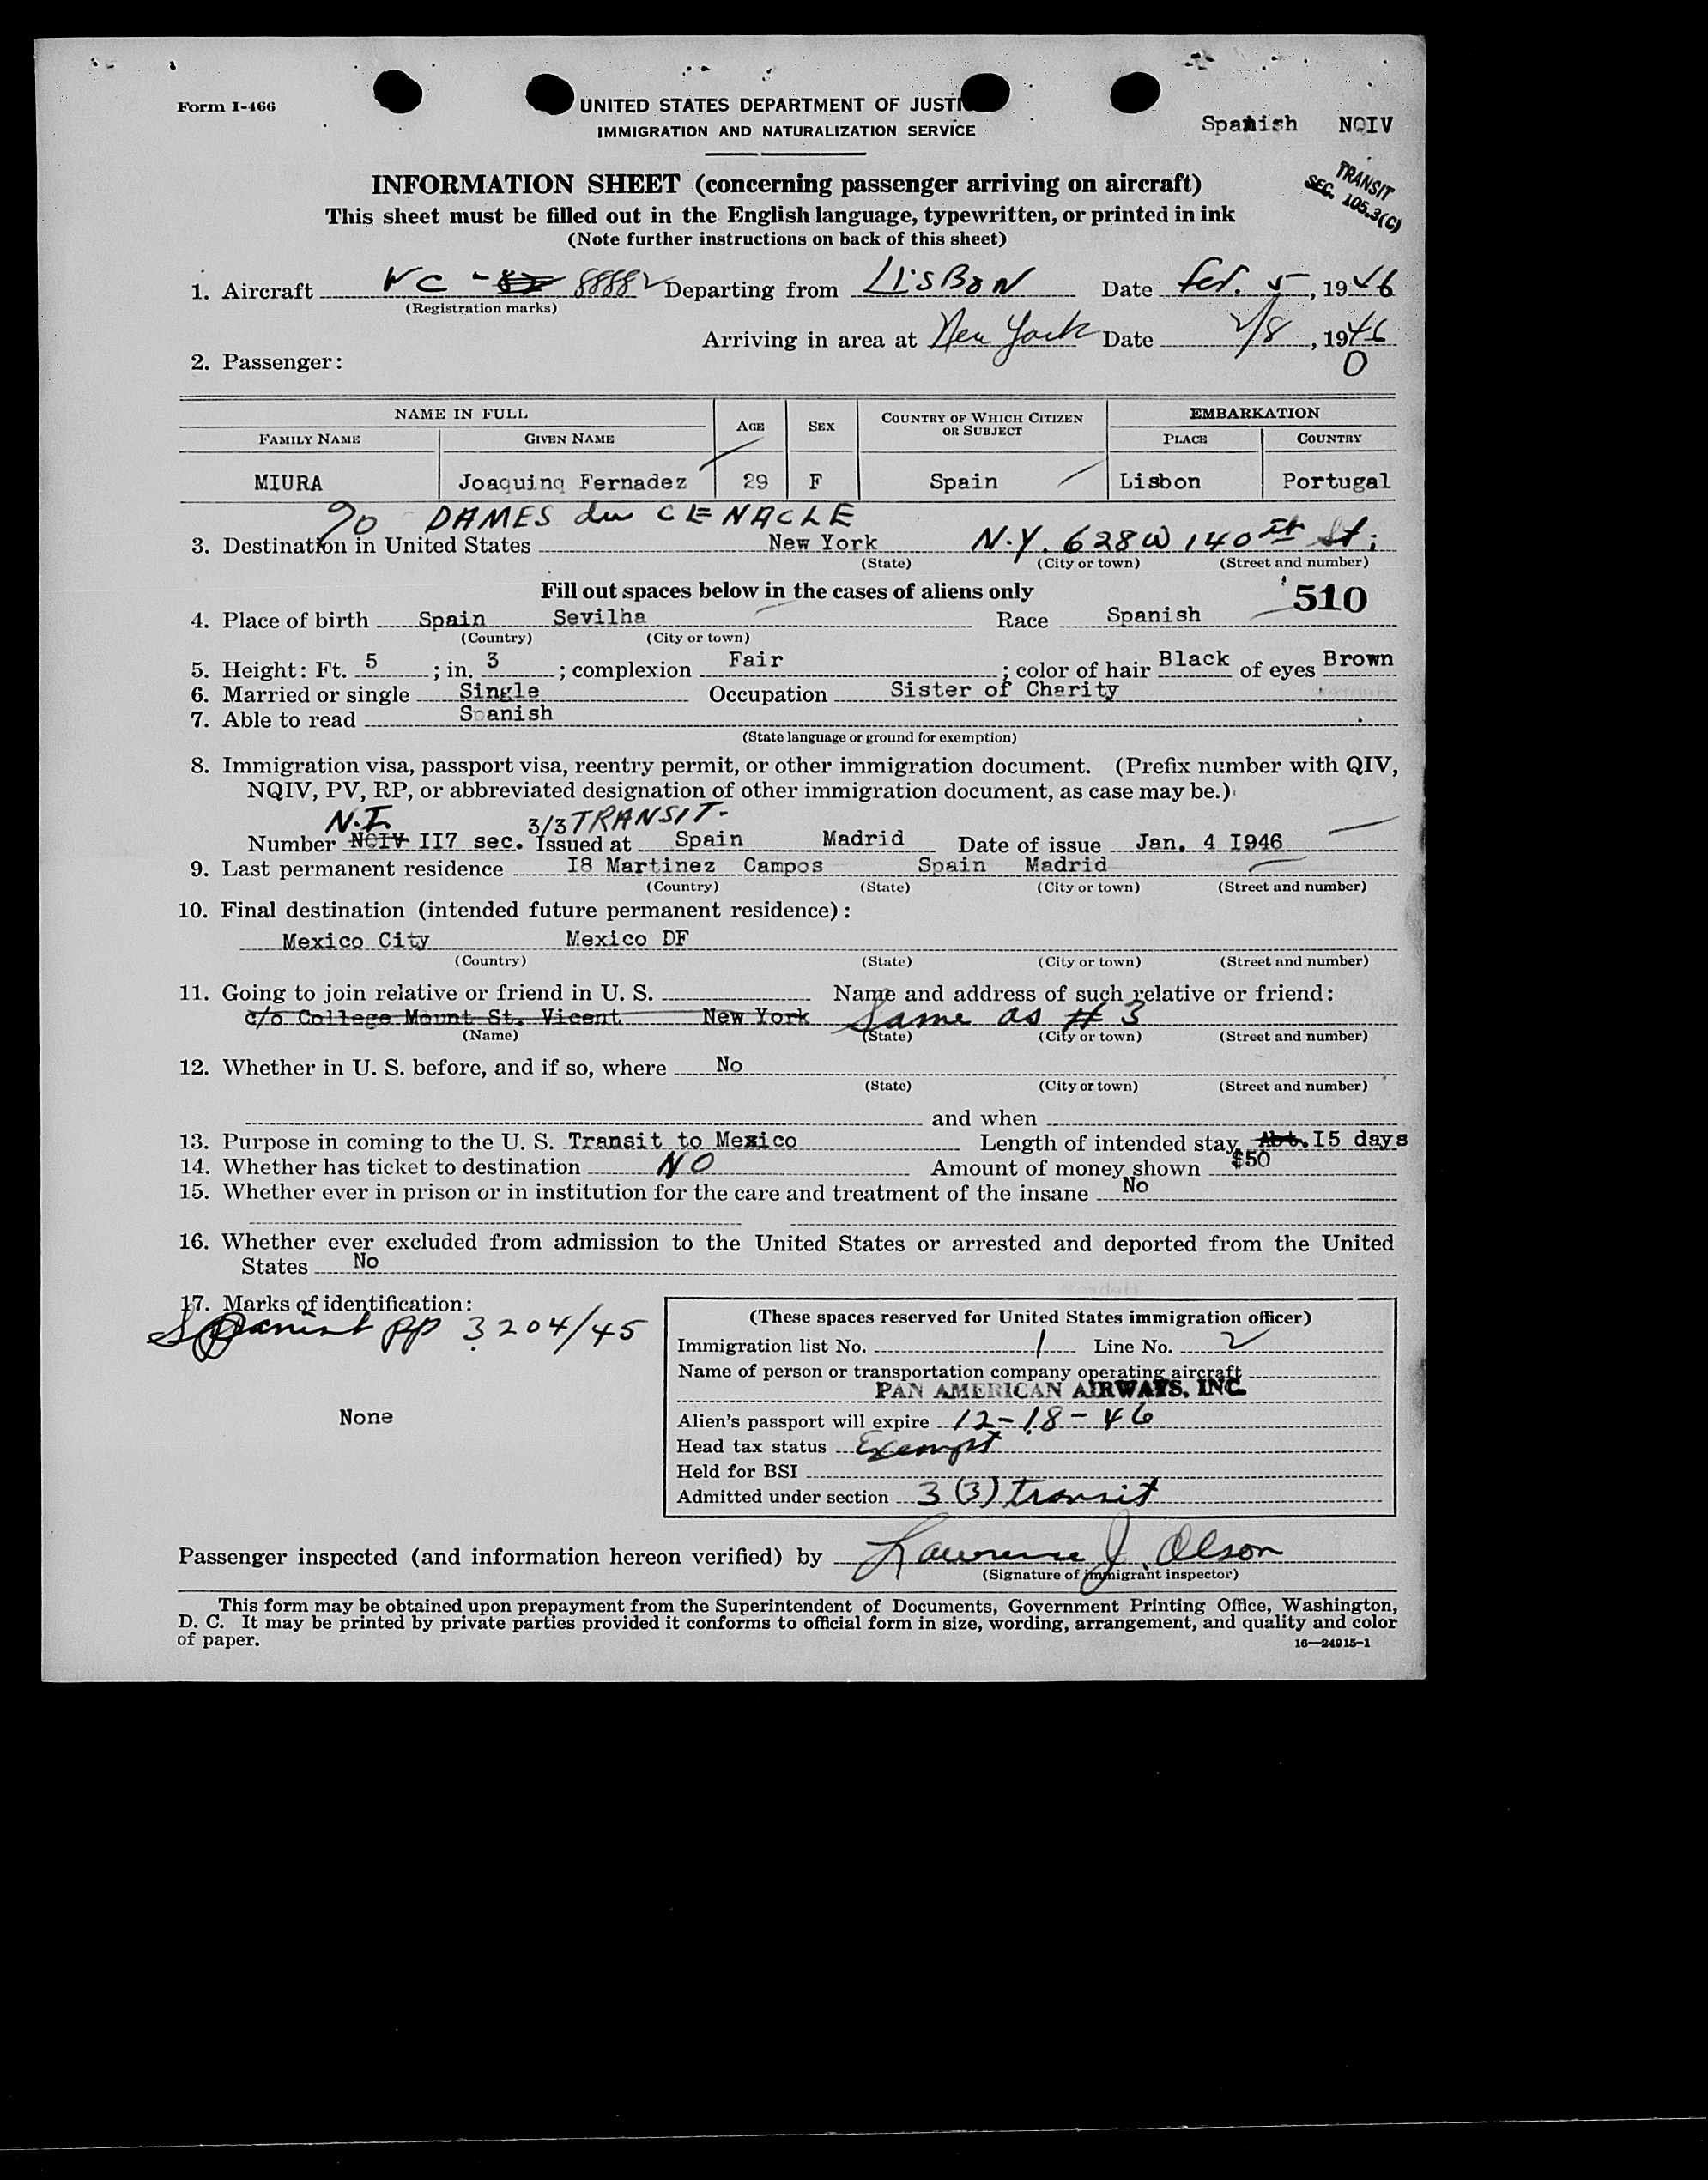 Form I-466
UNITED STATES DEPARTMENT OF JUSTI
IMMIGRATION AND NATURALIZATION SERVICE
Spanish NQIV
TRANSIT
SEC. 105.3(C)
INFORMATION SHEET (concerning passenger arriving on aircraft)
This sheet must be filled out in the English language, typewritten, or printed in ink
(Note further instructions on back of this sheet)
1. Aircraft NC - 88882 Departing from LISBON Date Feb. 5, 1946
(Registration marks)
Arriving in area at New York Date 2/8, 1946
2. Passenger: 0
NAME IN FULL AGE SEX COUNTRY OF WHICH CITIZEN OR SUBJECT EMBARKATION
FAMILY NAME GIVEN NAME PLACE COUNTRY
MIURA Joaquina Fernadez 29 F Spain Lisbon Portugal
c/o DAMES du CENACLE
3. Destination in United States New York N.Y. 628 W 140th St.
(State) (City or town) (Street and number)
Fill out spaces below in the cases of aliens only 510
4. Place of birth Spain Sevilha Race Spanish
(Country) (City or town)
5. Height: Ft. 5; in. 3; complexion Fair; color of hair Black of eyes Brown
6. Married or single Single Occupation Sister of Charity
7. Able to read Spanish
(State language or ground for exemption)
8. Immigration visa, passport visa, reentry permit, or other immigration document. (Prefix number with QIV,
NQIV, PV, RP, or abbreviated designation of other immigration document, as case may be.)
N.I. 3/3 TRANSIT-
Number NQIV II7 sec. Issued at Spain Madrid Date of issue Jan. 4 I946
9. Last permanent residence I8 Martinez Campos Spain Madrid
(Country) (State) (City or town) (Street and number)
10. Final destination (intended future permanent residence):
Mexico City Mexico DF
(Country) (State) (City or town) (Street and number)
11. Going to join relative or friend in U. S. Name and address of such relative or friend:
c/o College Mount St. Vicent New York Same as # 3
(Name) (State) (City or town) (Street and number)
12. Whether in U. S. before, and if so, where No
(State) (City or town) (Street and number)
and when
13. Purpose in coming to the U. S. Transit to Mexico Length of intended stay Abt. I5 days
14. Whether has ticket to destination NO Amount of money shown $50
15. Whether ever in prison or in institution for the care and treatment of the insane No
16. Whether ever excluded from admission to the United States or arrested and deported from the United
States No
17. Marks of identification:
Spanish PP 3204/45
None
(These spaces reserved for United States immigration officer)
Immigration list No. 1 Line No. 2
Name of person or transportation company operating aircraft
PAN AMERICAN AIRWAYS, INC.
Alien's passport will expire 12-18-46
Head tax status Exempt
Held for BSI
Admitted under section 3 (3) transit
Passenger inspected (and information hereon verified) by Lawrence J. Olson
(Signature of immigrant inspector)
This form may be obtained upon prepayment from the Superintendent of Documents, Government Printing Office, Washington,
D. C. It may be printed by private parties provided it conforms to official form in size, wording, arrangement, and quality and color
of paper.
16—24915-1